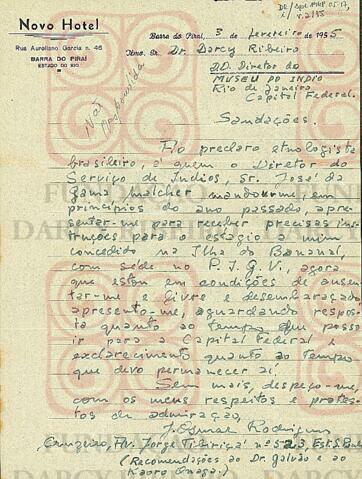 Novo Hotel
Rua Aureliano Garcia n. 46
BARRA DO PIRAÍ
ESTADO DO RIO
Barra do Piraí, 3 de fevereiro de 1955
Ilmo. Sr. Dr. Darcy Ribeiro
DD. Diretor do
MUSEU DO INDIO
Rio de Janeiro
Capital Federal.
Não
Saudações.
Ao preclaro etnologista
brasileiro, a quem o Diretor do
Serviço de Índios, Sr. José da
Gama Malcher mandou-me, em
princípios do ano passado, apre-
sentar-me para receber precisas ins-
truções para o estágio a mim
concedido na Ilha do Bananal,
com sede no P. I. G. V., agora
que estou em condições de ausen-
tar-me e livre e desembaraçado
apresento-me, aguardando respos-
ta quanto ao tempo que posso
ir para a Capital Federal e
esclarecimento quanto ao tempo
que devo permanecer aí.
Sem mais, despeço-me
com os meus respeitos e protes-
tos de admiração,
Rodrigues
Cruzeiro, Av. Jorge Tibiriçá nº 523, Est. S. Paulo
(Recomendações ao Dr. Galvão e ao
Kaoro Onaga.)
FUNDAÇÃO
DARCY RIBEIRO